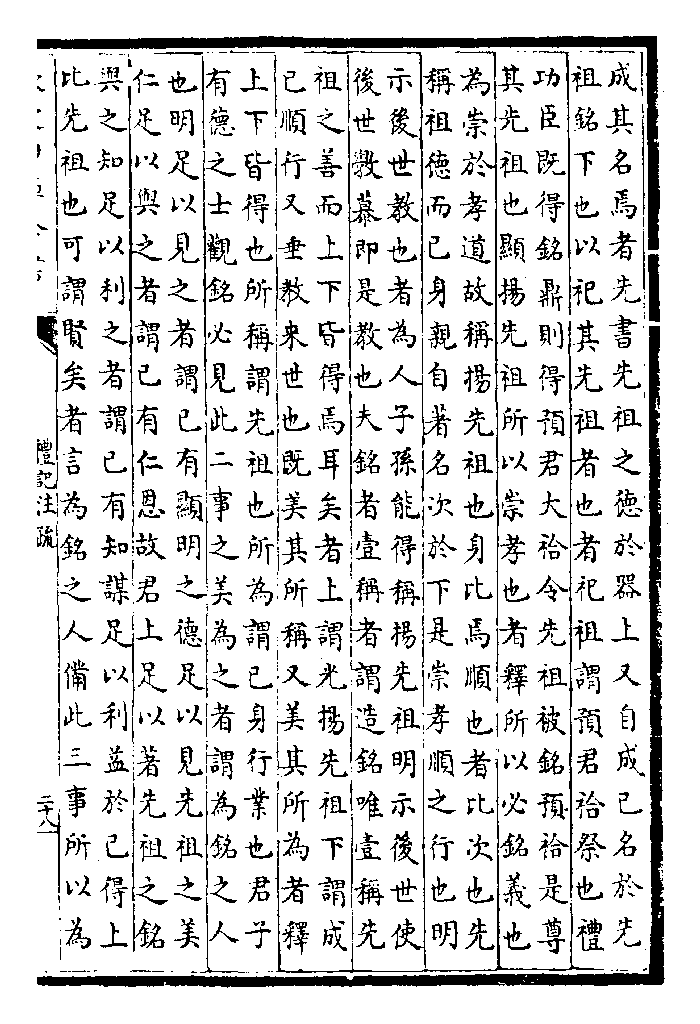 成其名焉者先書先祖之德於器上又自成己名於先
祖銘下也以祀其先祖者也者祀祖謂預君祫祭也禮
功臣既得銘鼎則得預君大祫令先祖被銘預祫是尊
其先祖也顯揚先祖所以崇孝也者釋所以必銘義也
為崇於孝道故稱揚先祖也身比焉順也者比次也先
稱祖德而已身親自著名次於下是崇孝順之行也明
示後世教也者為人子孫能得稱揚先祖明示後世使
後世斆慕即是教也夫銘者壹稱者謂造銘唯壹稱先
祖之善而上下皆得焉耳矣者上謂光揚先祖下謂成
己順行又垂教来世也既美其所稱又美其所為者釋
上下皆得也所稱謂先祖也所為謂己身行業也君子
有德之士觀銘必見此二事之美為之者謂為銘之人
也明足以見之者謂己有顯明之德足以見先祖之美
仁足以與之者謂己有仁恩故君上足以著先祖之銘
與之知足以利之者謂己有知謀足以利益於己得上
比先祖也可謂賢矣者言為銘之人備此三事所以為
禮記注疏
二十八